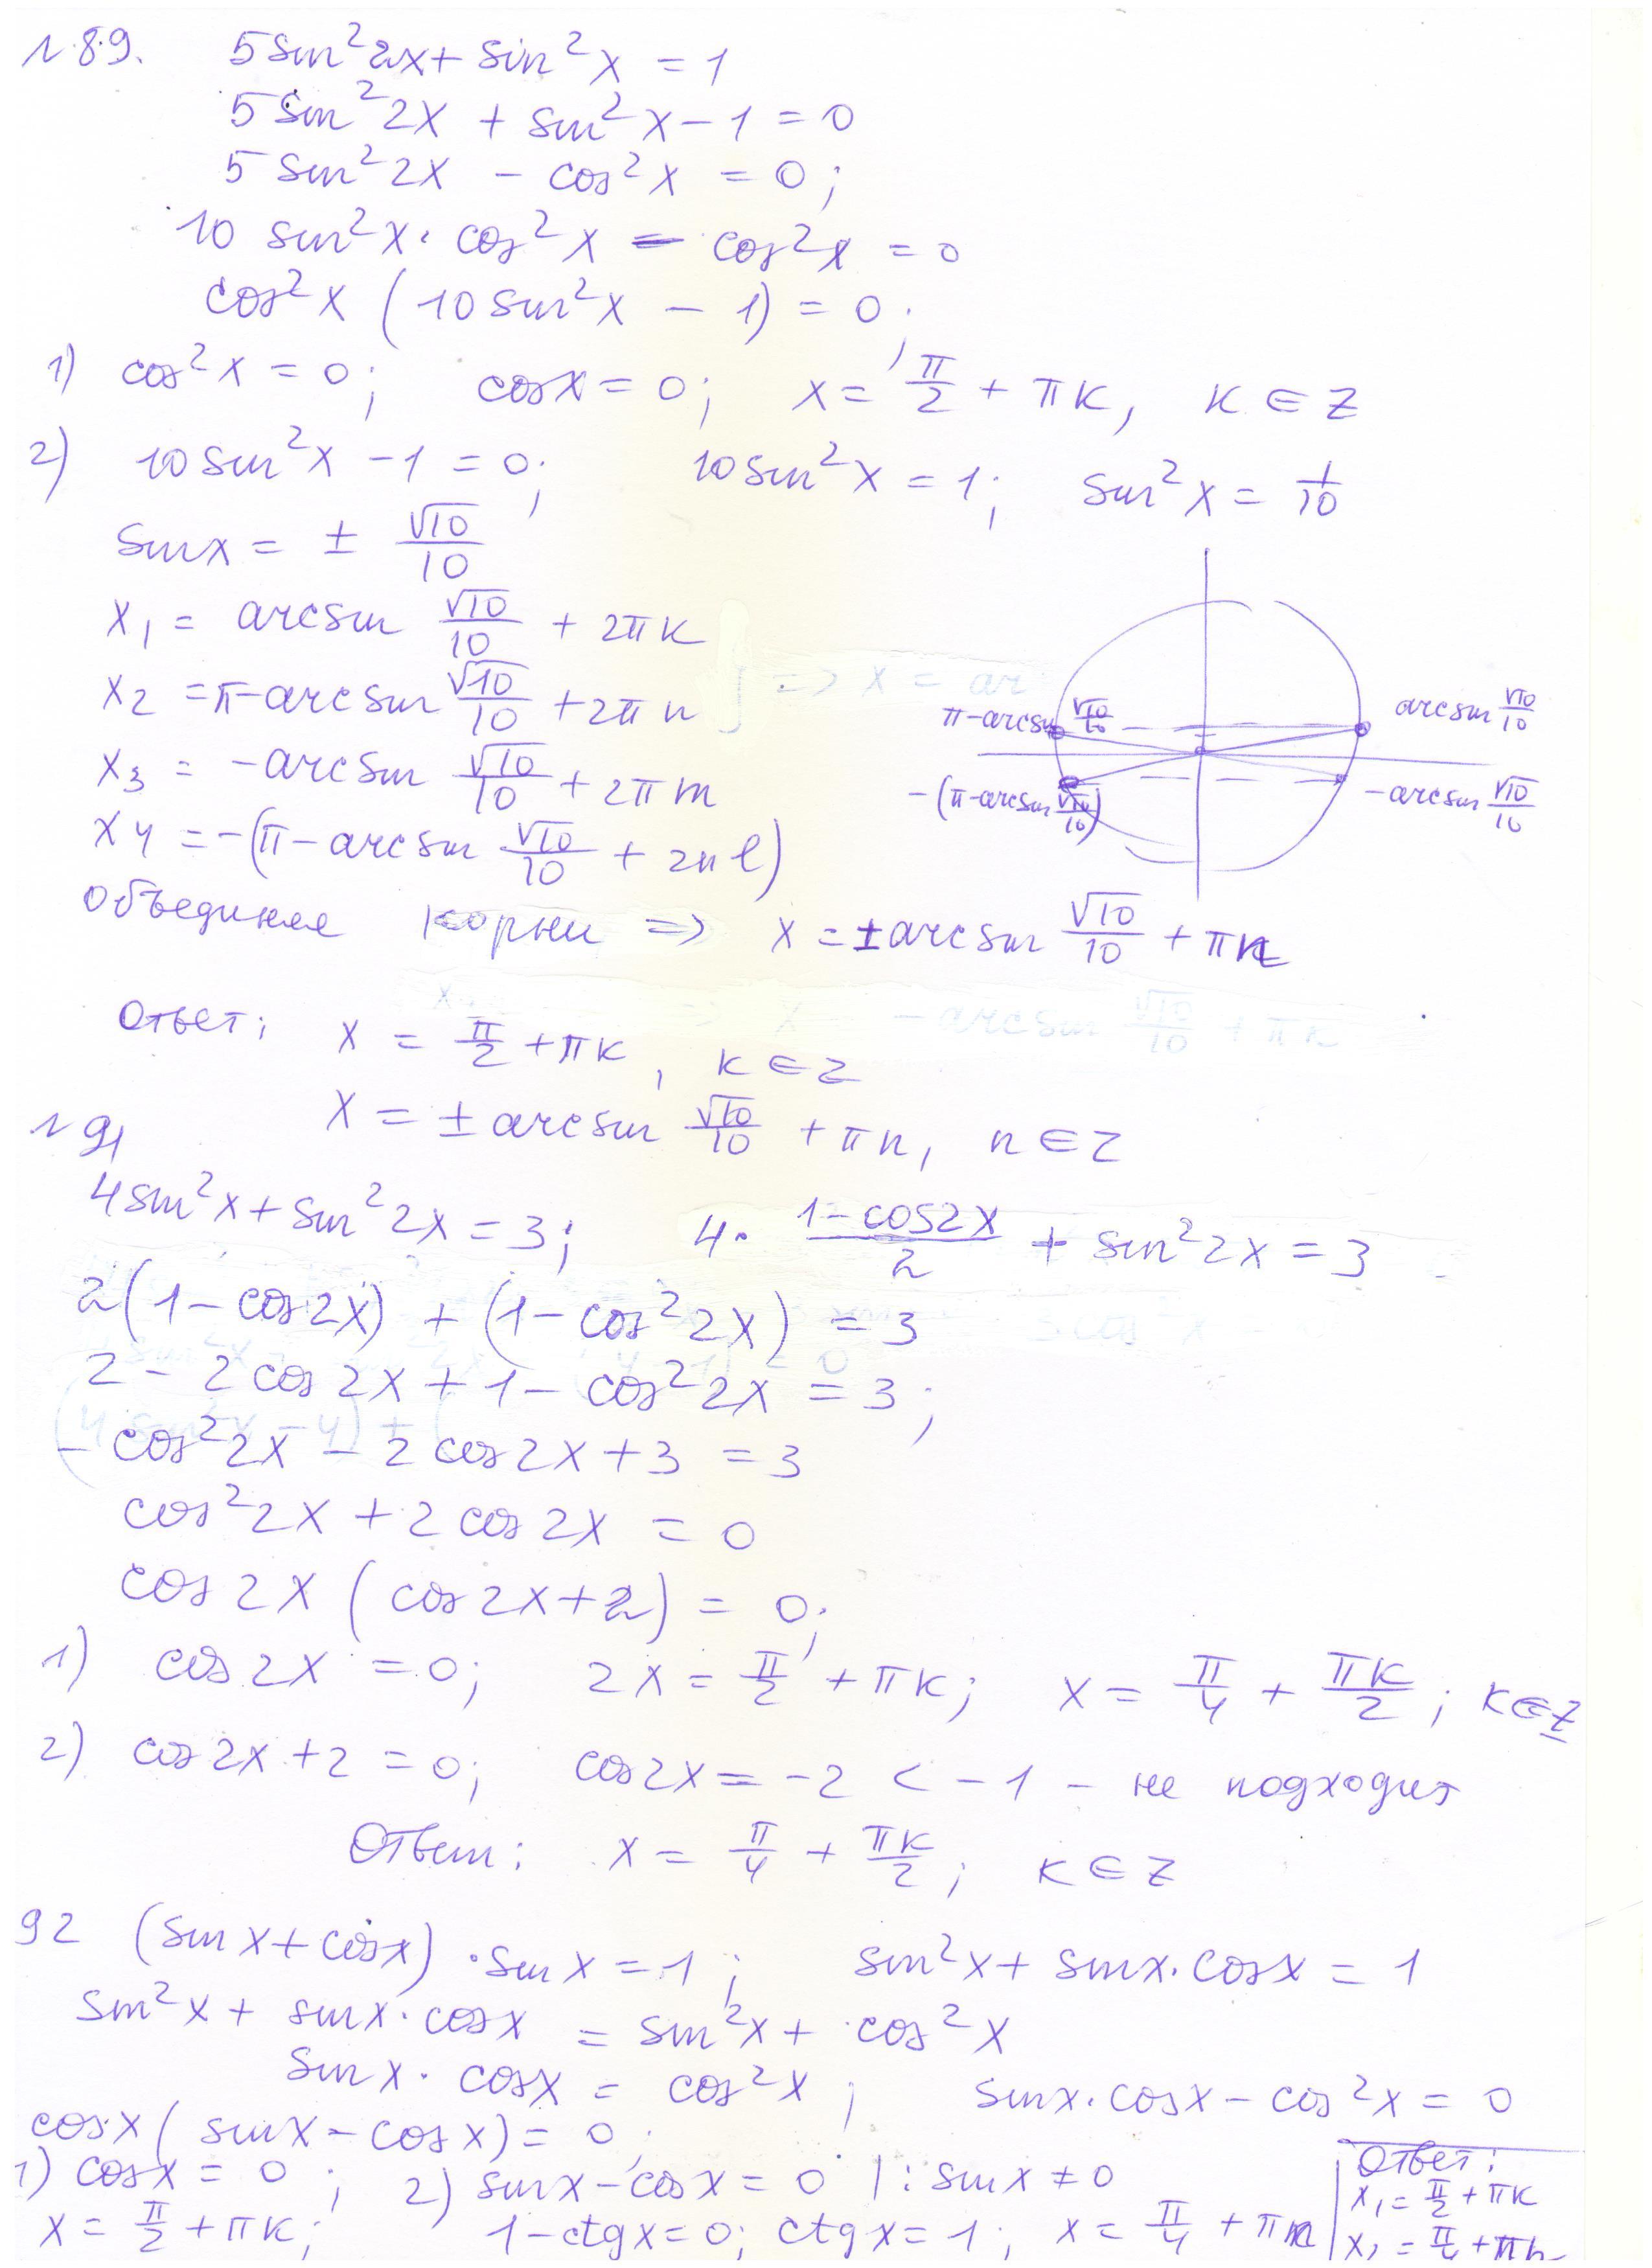 №89. 5sin²2x + sin²x = 1
5sin²2x + sin²x - 1 = 0
5sin²2x - cos²x = 0;
10 sin²x · cos²x - cos²x = 0
cos²x (10sin²x - 1) = 0;
1) cos²x = 0; cosx = 0; x = π/2 + πk, k ∈ Z
2) 10sin²x - 1 = 0; 10sin²x = 1; sin²x = 1/10
sinx = ± √10/10
x₁ = arcsin √10/10 + 2πk
x₂ = π-arcsin √10/10 + 2πn
x₃ = -arcsin √10/10 + 2πm
x₄ = -(π-arcsin √10/10 + 2πl)
π-arcsin √10/10 arcsin √10/10
-(π-arcsin √10/10) -arcsin √10/10
Объединяя корни => x = ±arcsin √10/10 + πn
Ответ: x = π/2 + πk, k ∈ Z
x = ± arcsin √10/10 + πn, n ∈ Z
№91
4sin²x + sin²2x = 3; 4 · (1-cos2x)/2 + sin²2x = 3
2(1-cos2x) + (1-cos²2x) = 3
2 - 2cos2x + 1 - cos²2x = 3;
- cos²2x - 2cos2x + 3 = 3
cos²2x + 2cos2x = 0
cos2x (cos2x + 2) = 0;
1) cos2x = 0; 2x = π/2 + πk; x = π/4 + πk/2; k ∈ Z
2) cos2x + 2 = 0; cos2x = -2 < -1 - не подходит
Ответ: x = π/4 + πk/2; k ∈ Z
92 (sinx + cosx) · sinx = 1; sin²x + sinx·cosx = 1
sin²x + sinx·cosx = sin²x + cos²x
sinx · cosx = cos²x; sinx·cosx - cos²x = 0
cosx (sinx - cosx) = 0;
1) cosx = 0; 2) sinx - cosx = 0 |: sinx ≠ 0
x = π/2 + πk; 1 - ctgx = 0; ctgx = 1; x = π/4 + πn
Ответ:
x₁ = π/2 + πk
x₂ = π/4 + πn